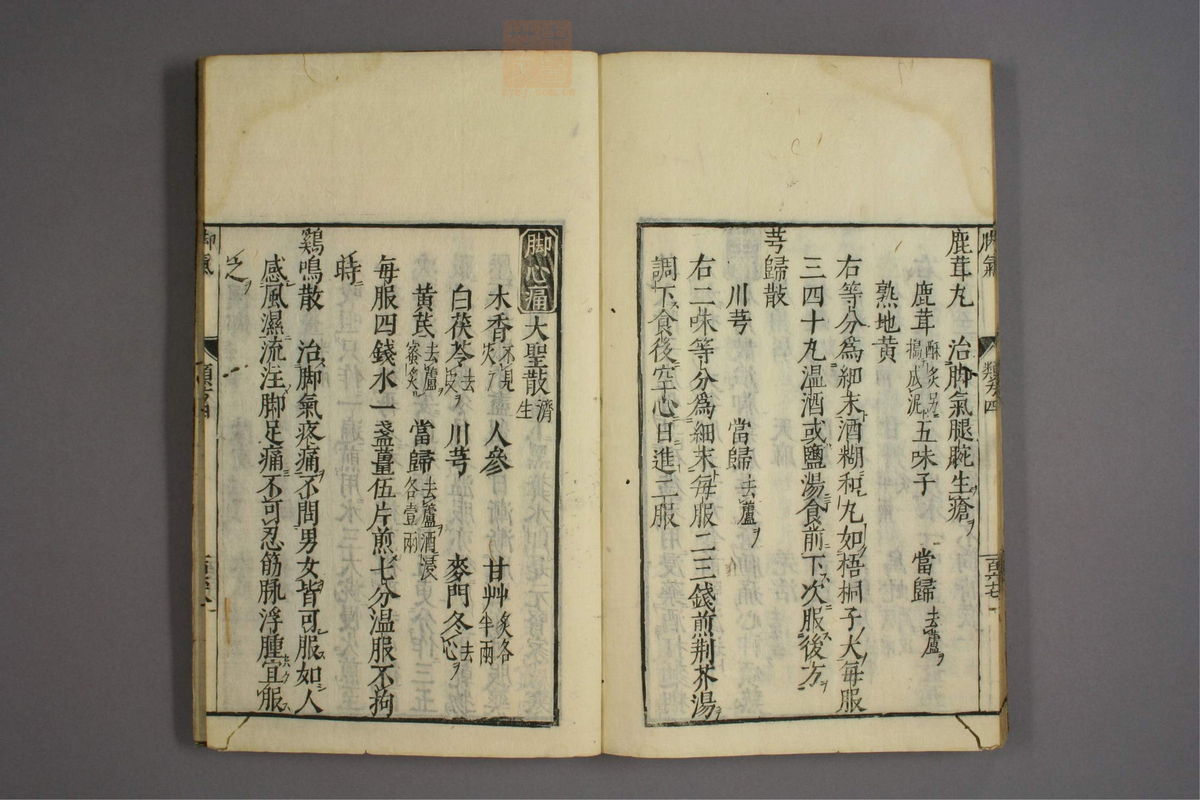 鹿茸丸　治脚氣腿腕生瘡
鹿茸酥炙另搗成泥　五味子　當歸去蘆
熟地黄
右等分爲細末酒糊和丸如梧桐子大毎服
三四十丸温酒或鹽湯食前下次服後方
芎歸散
川芎　當歸去蘆
右二味等分爲細末毎服二三錢煎荆芥湯
調下食後空心日進二服
脚心痛　大聖散濟生
木香不見火　人參　甘艸炙各半兩
白茯苓去皮　川芎　麥門冬去心
黄茋去蘆蜜炙　當歸去蘆酒浸各壹兩
毎服四錢水一盞薑伍片煎七分温服不拘
時
鷄鳴散　治脚氣疼痛不問男女皆可服如人
感風濕流注脚足痛不可忍筋脉浮腫宜服
之